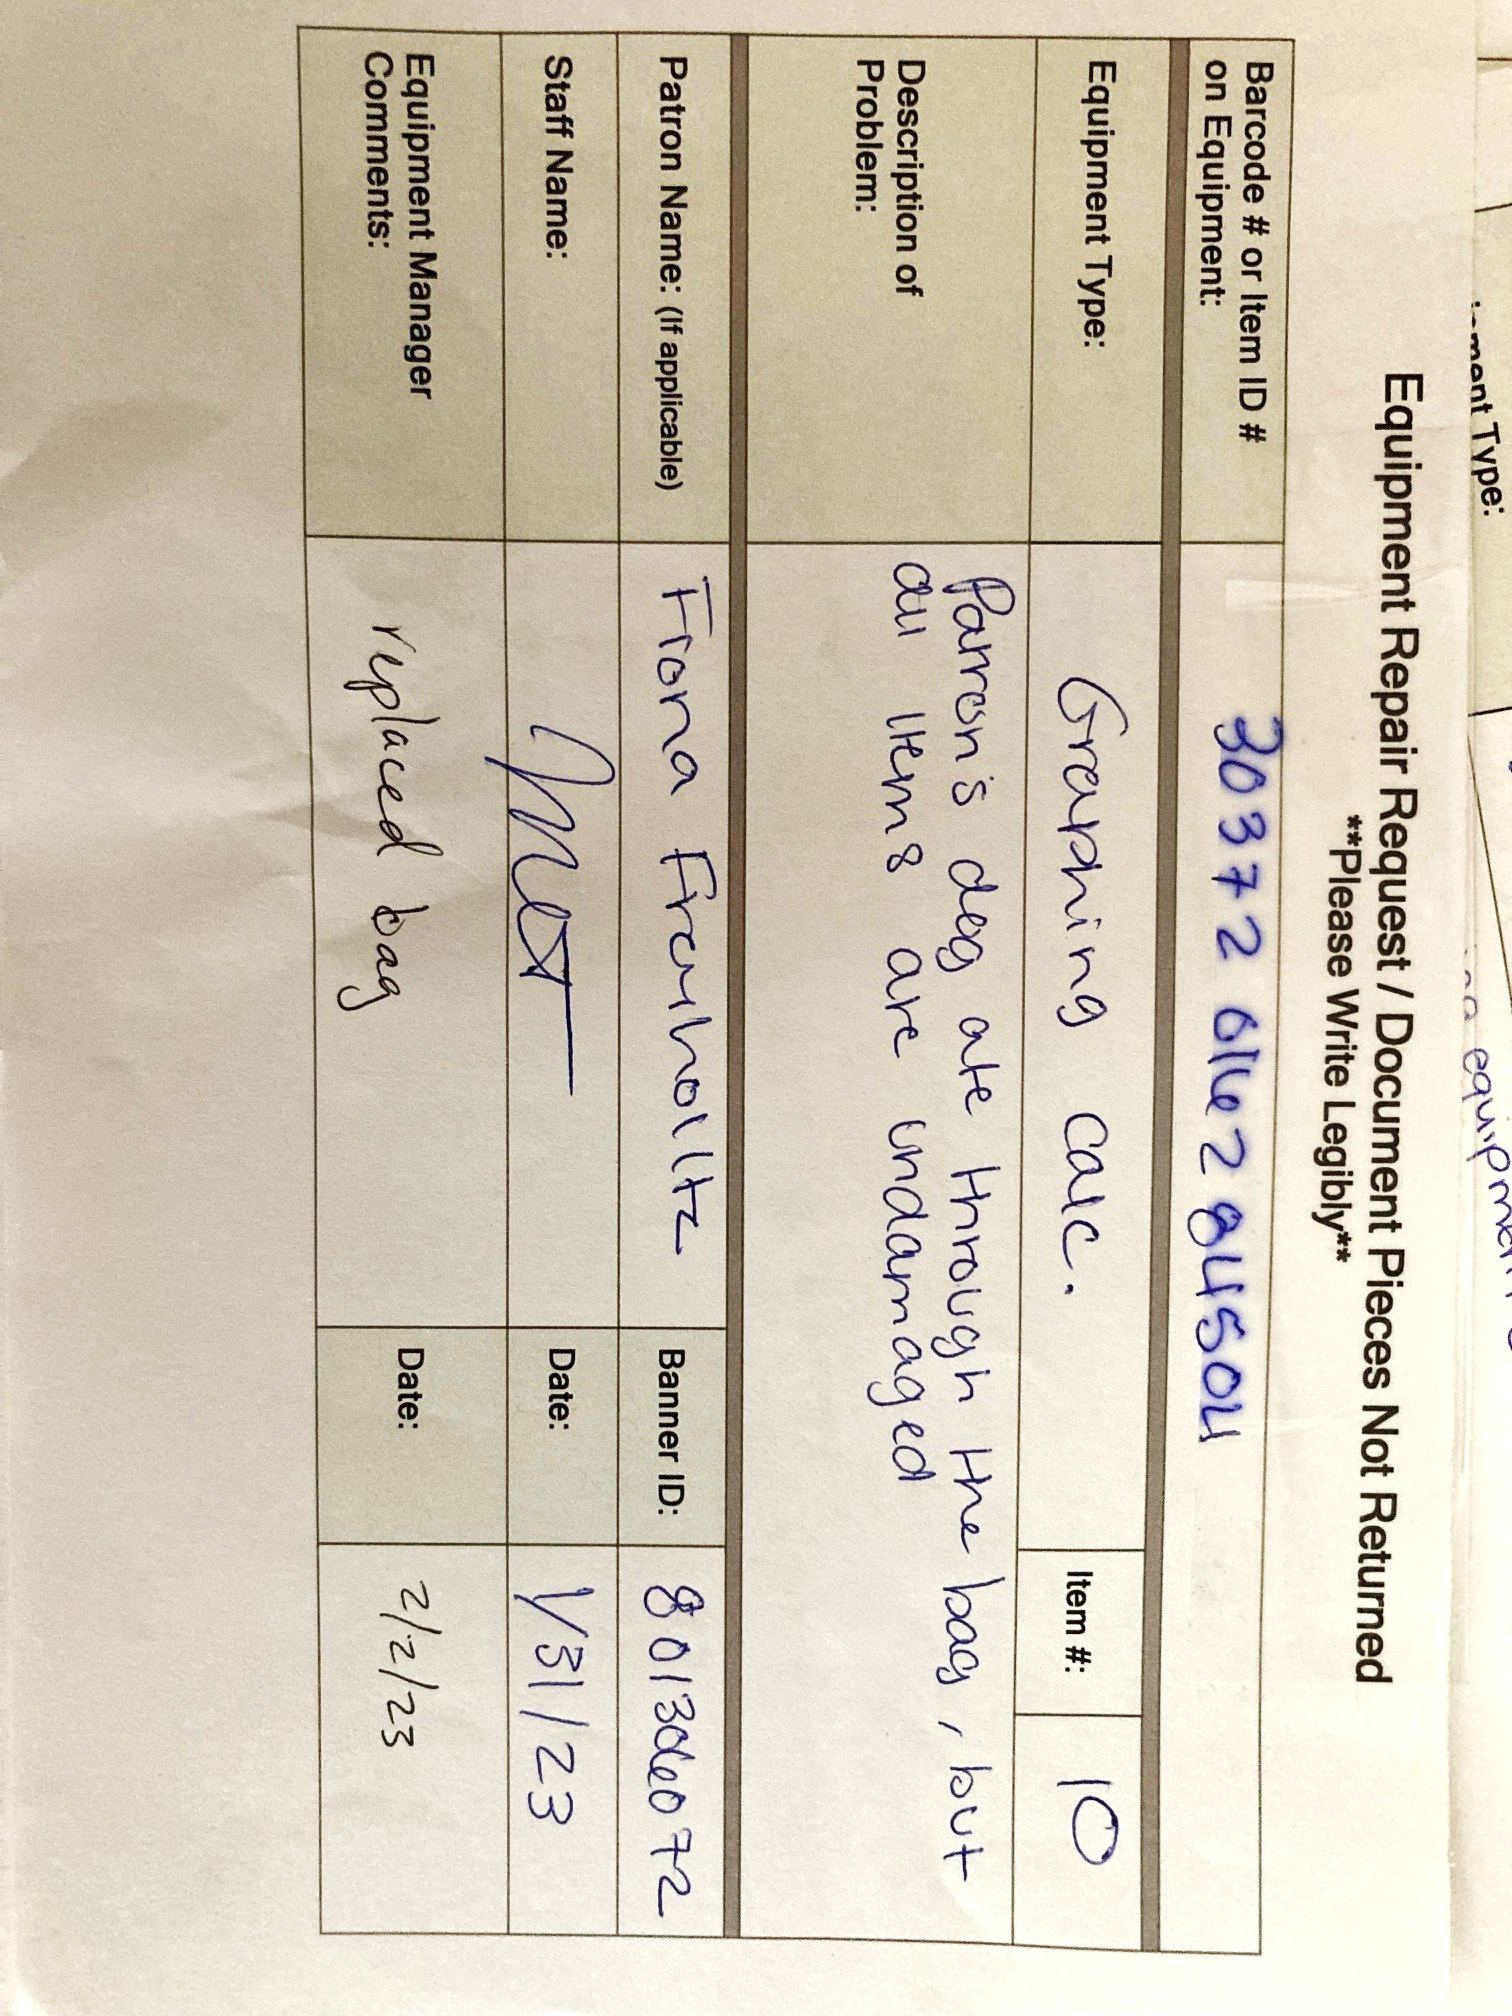 ment Type:
equipment
Equipment Repair Request / Document Pieces Not Returned
**Please Write Legibly**
Barcode # or Item ID #
on Equipment:
30372016284504
Equipment Type:
Graphing calc.
Item #:
10
Description of
Problem:
Patron's dog ate through the bag, but
all items are undamaged
Patron Name: (If applicable)
Fiona
Banner ID:
801306072
Staff Name:
Date:
1/31/23
Equipment Manager
Comments:
replaced bag
Date:
2/2/23